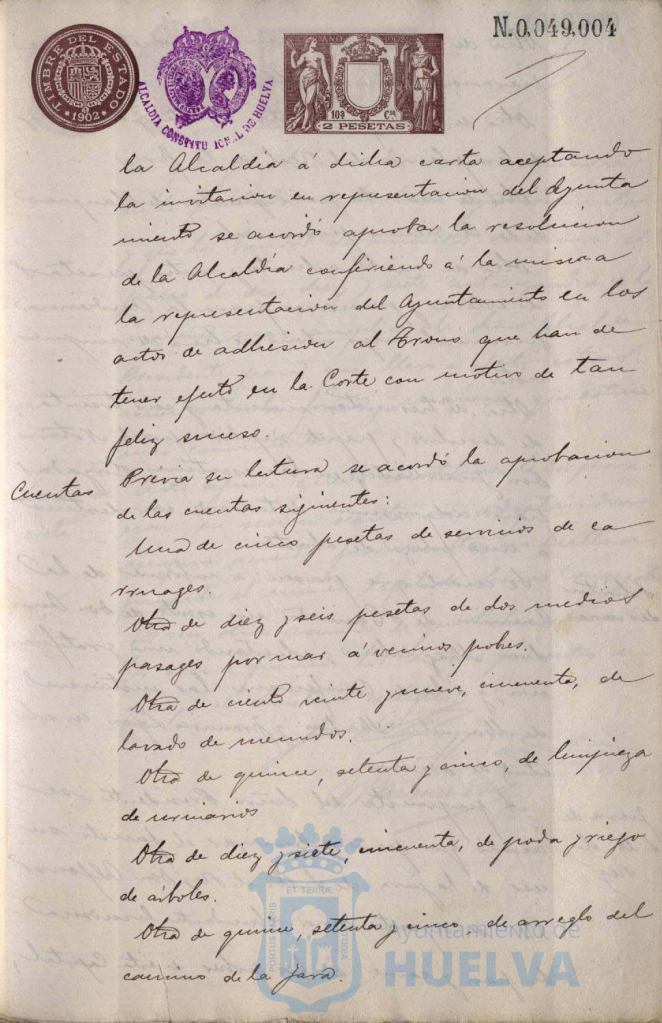 N.0,049,004
TIMBRE DEL ESTADO
1902
ALCALDIA CONSTITUCIONAL DE HUELVA
AÑO 1902
10ª Cª
2 PESETAS
la Alcaldia á dicha carta aceptando
la invitacion en representacion del Ayunta
miento se acordó aprobar la resolucion
de la Alcaldía confiriendo á la misma
la representacion del Ayuntamiento en los
actos de adhesion al Trono que han de
tener efecto en la Corte con motivo de tan
feliz suceso.
Cuentas
Previa su lectura se acordó la aprobacion
de las cuentas siguientes:
Una de cinco pesetas de servicios de ca
rruages.
Otra de diez y seis pesetas de dos medios
pasages por mar á vecinos pobres.
Otra de ciento veinte y nueve, cincuenta, de
lavado de menudos.
Otra de quince, setenta y cinco, de limpieza
de urinarios
Otra de diez y siete, cincuenta, de poda y riego
de árboles.
Otra de quince, setenta y cinco, de arreglo del
camino de la Jara.
PORTUS MARIS ET TERRAE CUSTODIA
Ayuntamiento de
HUELVA